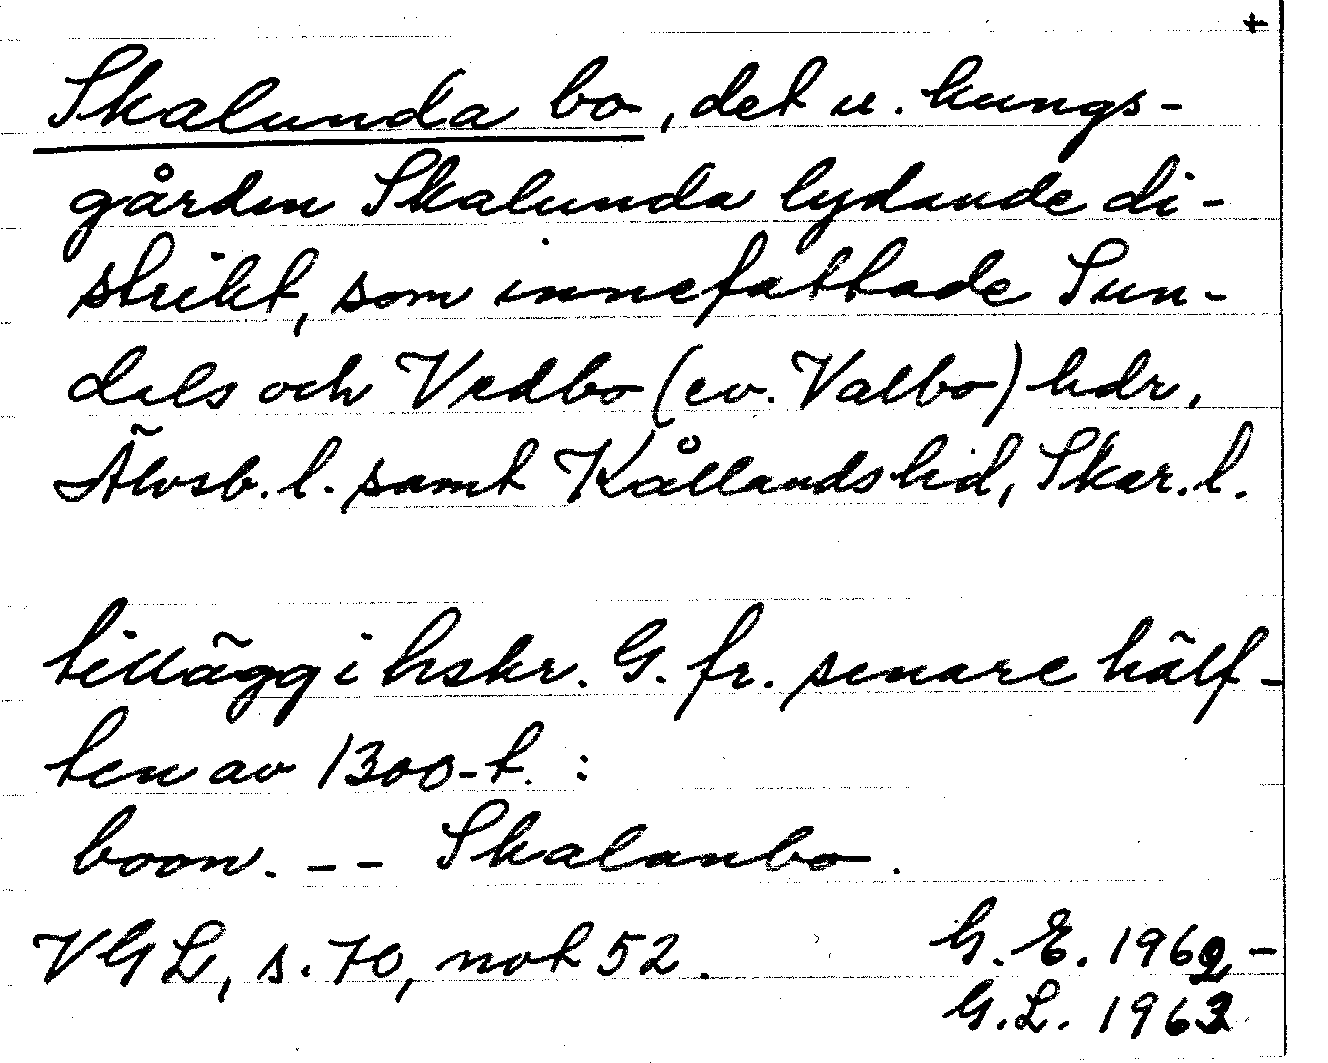 +
Skalunda bo, det u. kungs-
gården Skalunda lydande di-
strikt, som innefattade Sun-
dals och Vedbo (ev. Valbo) hdr,
Älvsb. l. samt Kållands hd, Skar. l.
tillägg i hskr. G. fr. senare hälf-
ten av 1300-t. :
boon. -- Skalanbo.
VGL, s. 70, not 52.
G. E. 1962 -
G. L. 1963